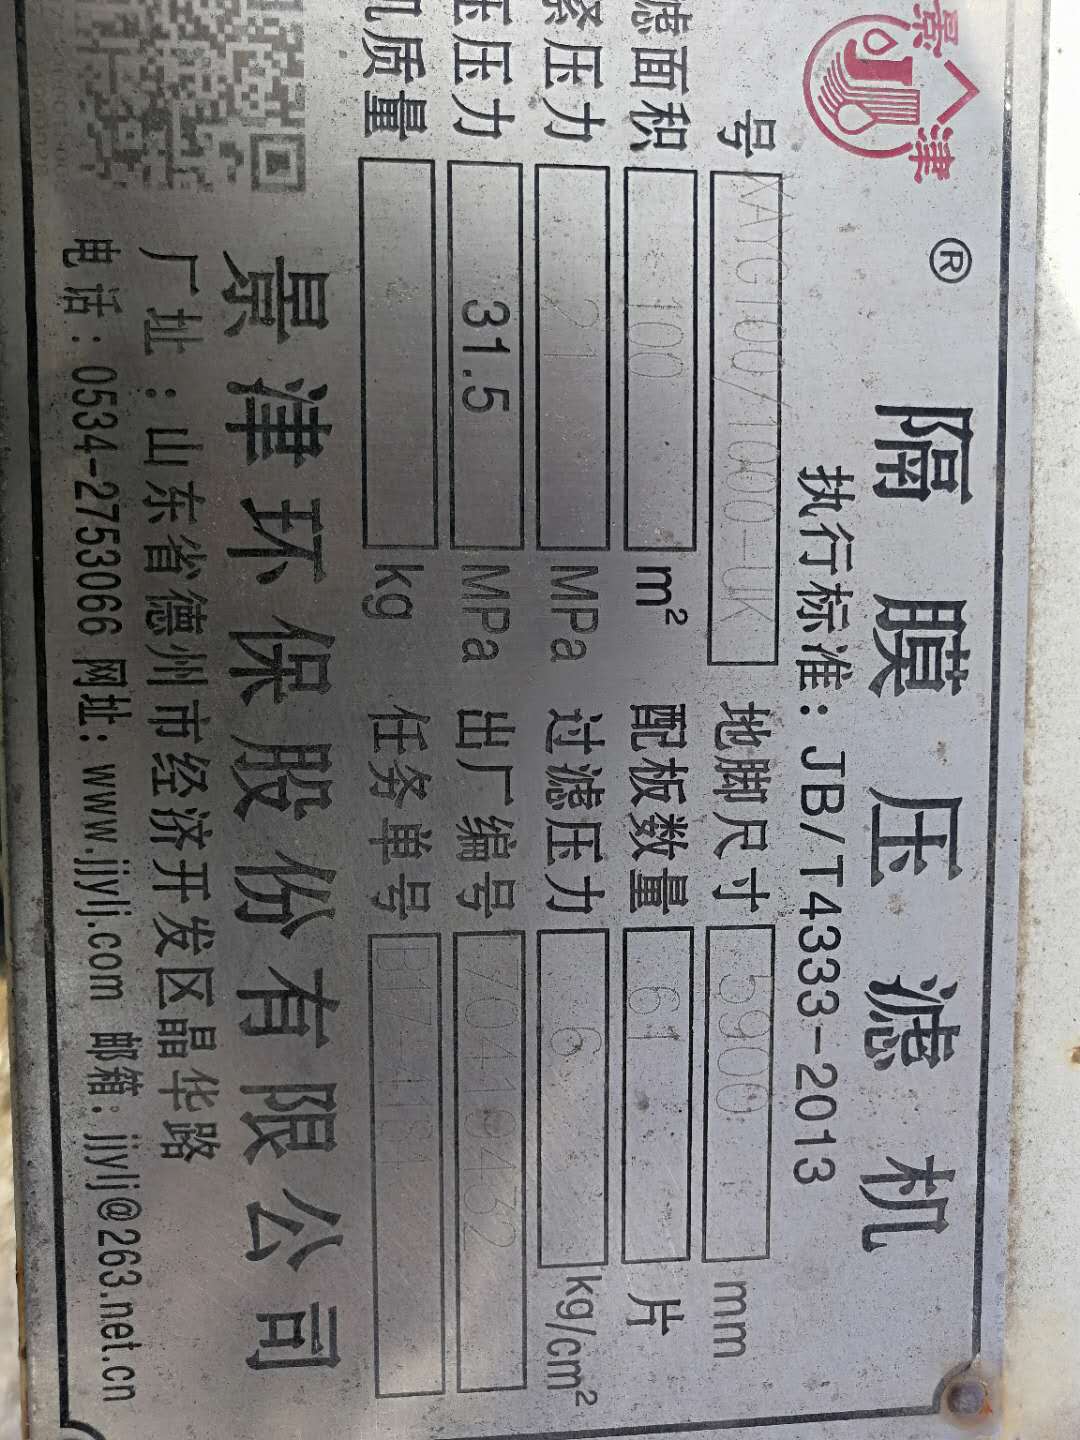 景津
®
隔膜压滤机
执行标准：JB/T4333-2013
号 XAYG100/1000-UK 地脚尺寸 5900 mm
滤面积 100 m² 配板数量 61 片
压力 21 MPa 过滤压力 6 kg/cm²
压压力 31.5 MPa 出厂编号 704194 32
机质量 kg 任务单号 B17-4184
景津环保股份有限公司
厂址：山东省德州市经济开发区晶华路
电话：0534-2753066 网址：www.jjylj.com 邮箱：jjylj@263.net.cn